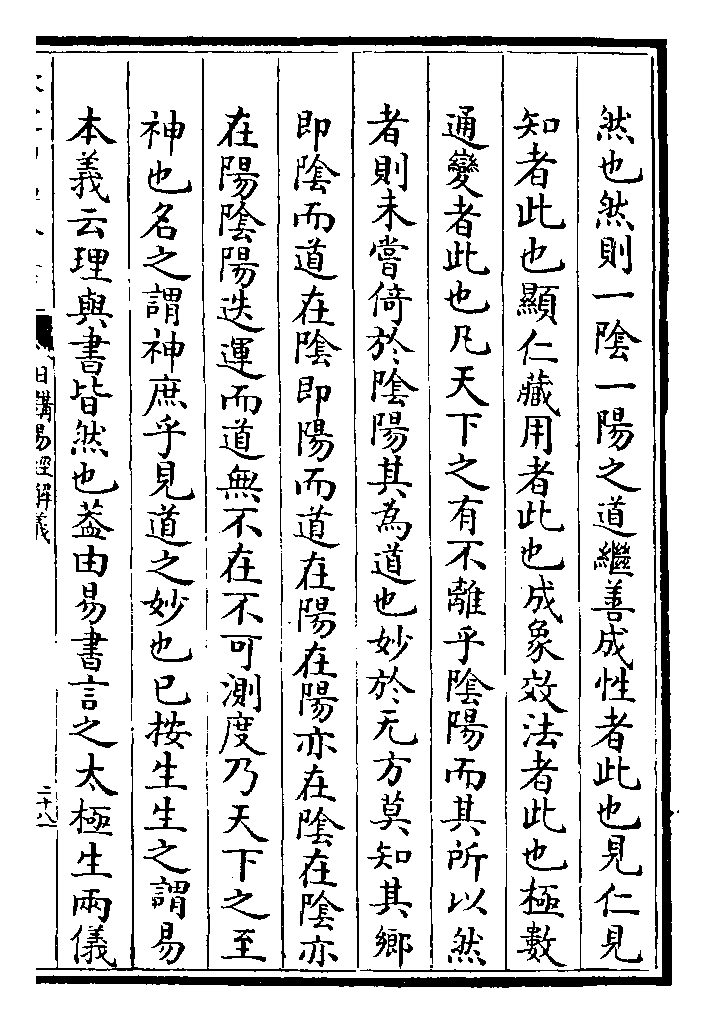 然也然則一陰一陽之道繼善成性者此也見仁見
知者此也顯仁藏用者此也成象效法者此也極數
通變者此也凡天下之有不離乎陰陽而其所以然
者則未嘗倚於陰陽其為道也妙於无方莫知其鄉
即陰而道在陰即陽而道在陽在陽亦在陰在陰亦
在陽陰陽迭運而道無不在不可測度乃天下之至
神也名之謂神庶乎見道之妙也已按生生之謂易
本義云理與書皆然也葢由易書言之太極生兩儀
日講易經解義
二十八